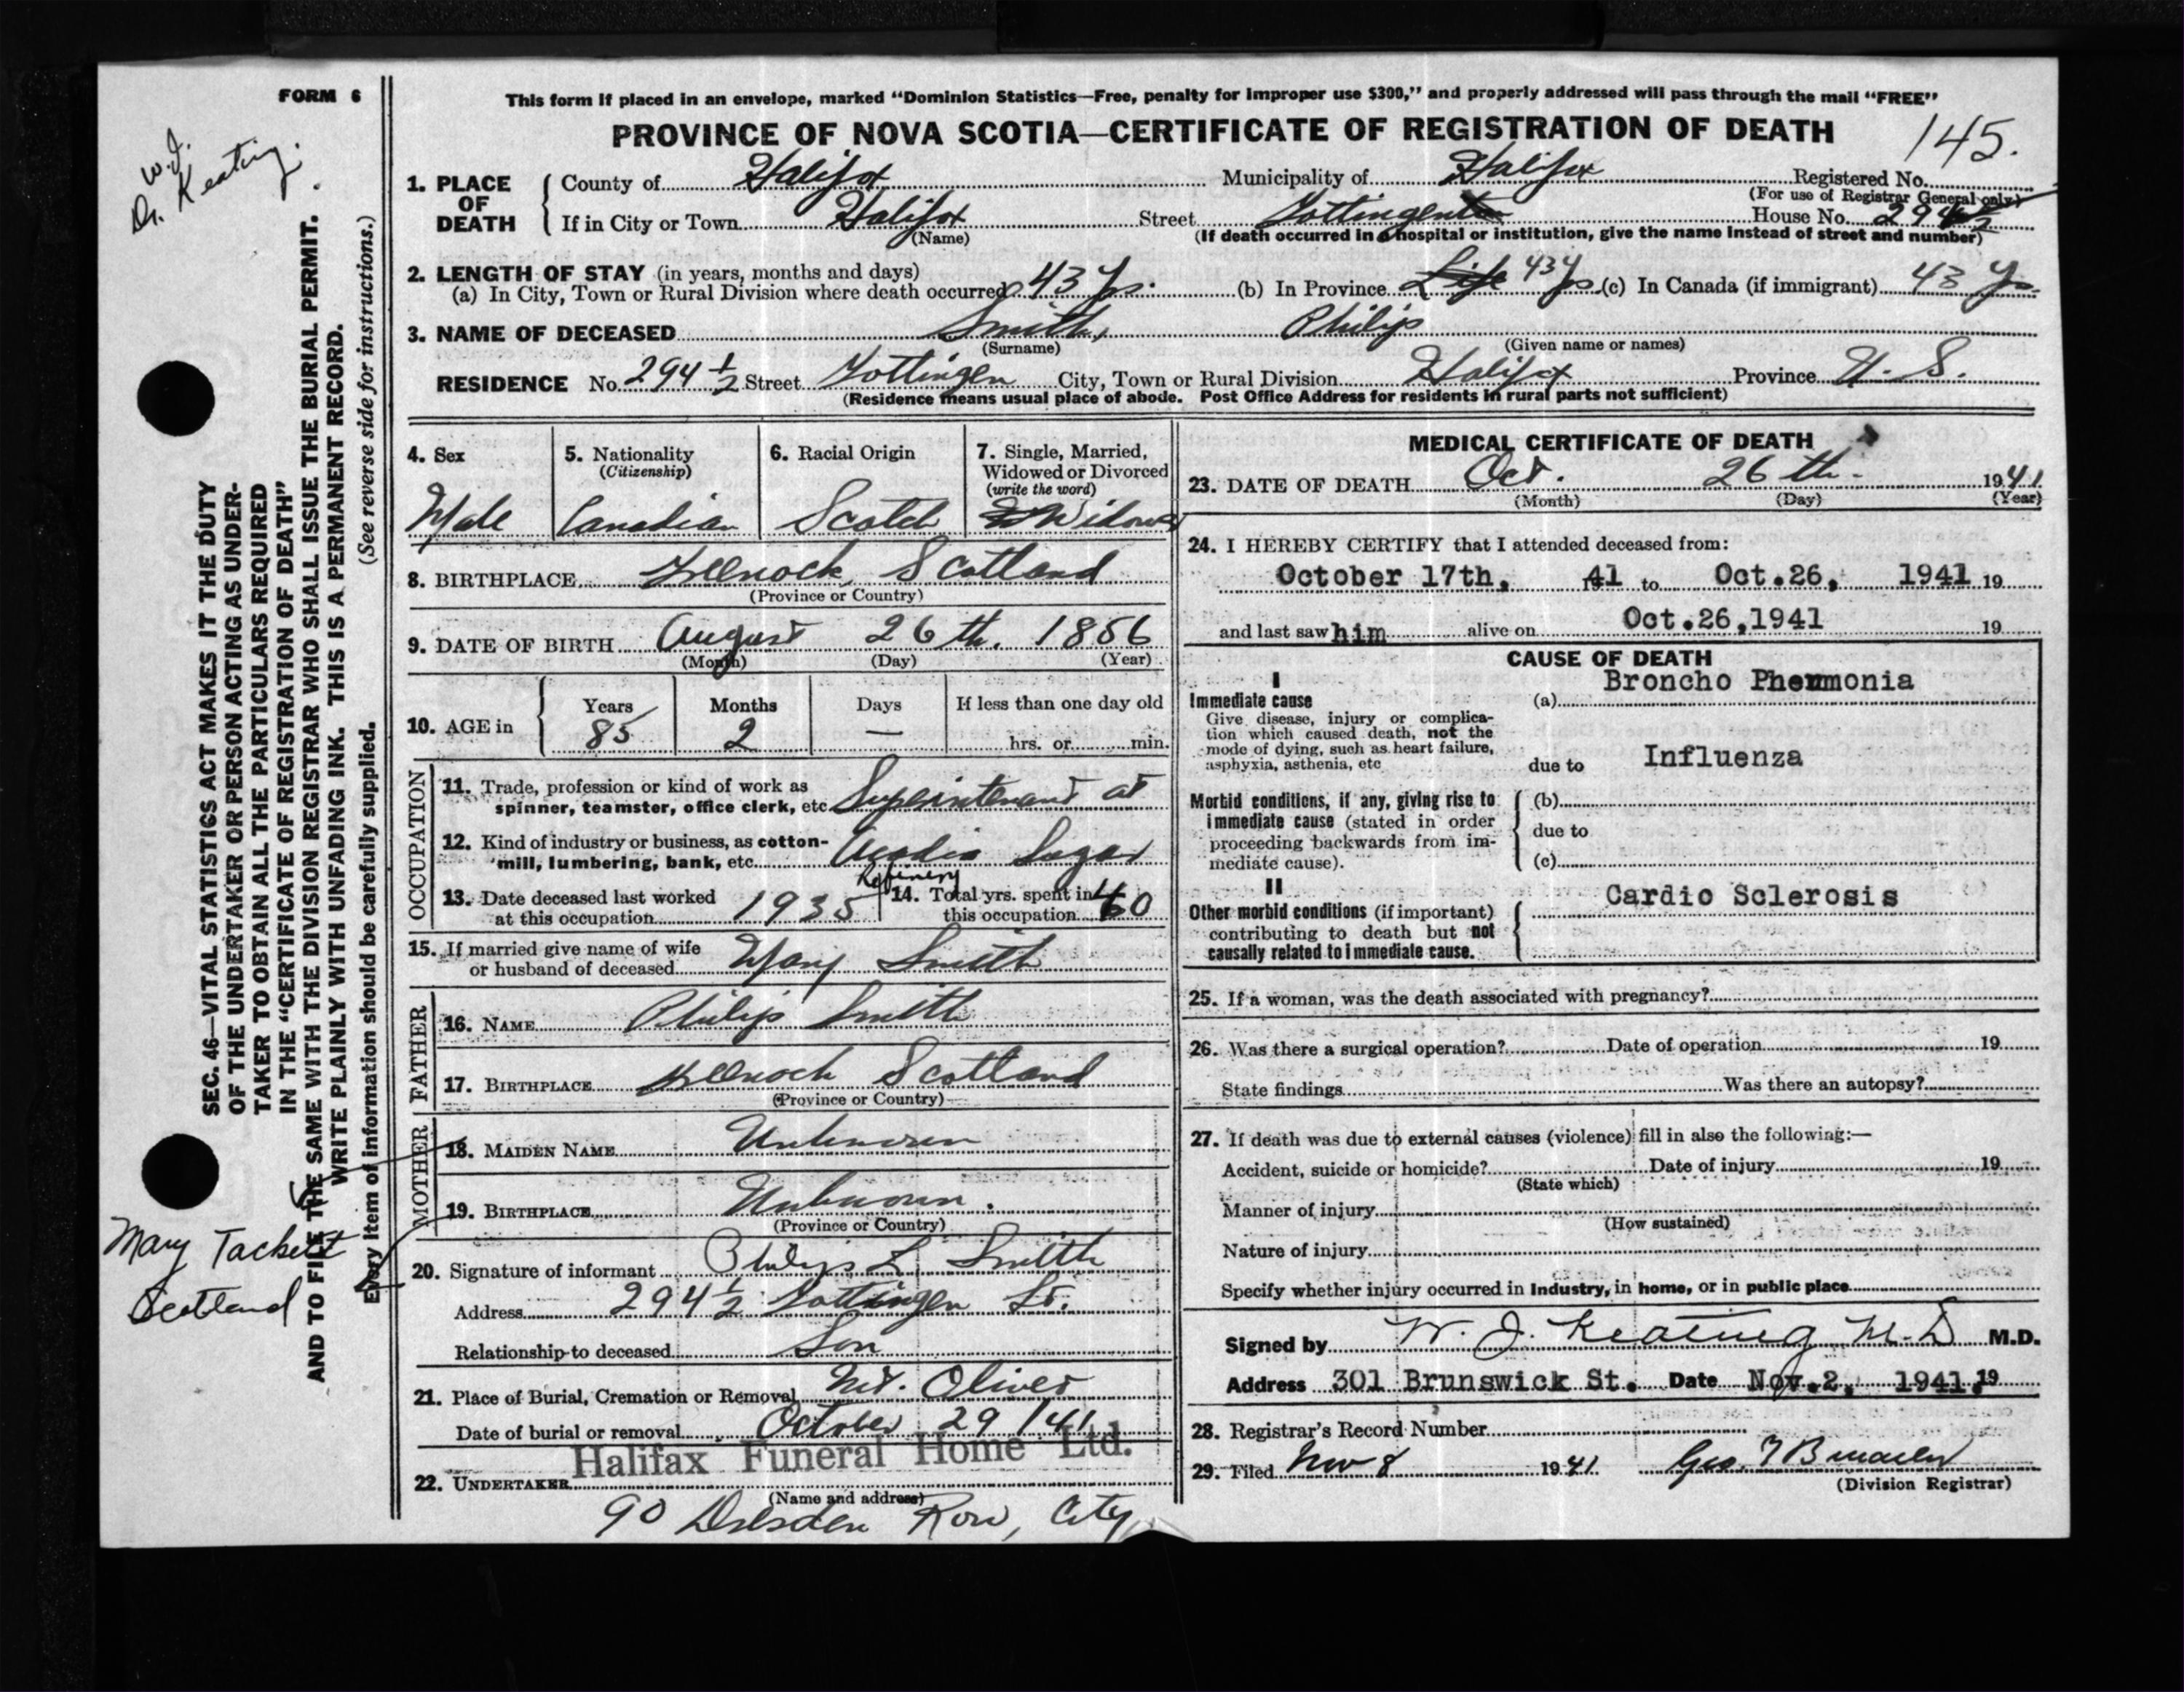 FORM 6
W. J.
Dr. Keating.
SEC. 46—VITAL STATISTICS ACT MAKES IT THE DUTY
OF THE UNDERTAKER OR PERSON ACTING AS UNDER-
TAKER TO OBTAIN ALL THE PARTICULARS REQUIRED
IN THE "CERTIFICATE OF REGISTRATION OF DEATH"
AND TO FILE THE SAME WITH THE DIVISION REGISTRAR WHO SHALL ISSUE THE BURIAL PERMIT.
WRITE PLAINLY WITH UNFADING INK. THIS IS A PERMANENT RECORD.
Every item of information should be carefully supplied. (See reverse side for instructions.)
Mary Tackett
Scotland
This form if placed in an envelope, marked "Dominion Statistics—Free, penalty for improper use $300," and properly addressed will pass through the mail "FREE"
PROVINCE OF NOVA SCOTIA—CERTIFICATE OF REGISTRATION OF DEATH
145.
1. PLACE OF DEATH County of Halifax Municipality of Halifax Registered No.
(For use of Registrar General only)
If in City or Town Halifax Street Gottingen House No. 294 1/2
(Name) (If death occurred in a hospital or institution, give the name instead of street and number)
2. LENGTH OF STAY (in years, months and days)
(a) In City, Town or Rural Division where death occurred 43 Yrs. (b) In Province Life 43 Yrs (c) In Canada (if immigrant) 43 Yrs.
3. NAME OF DECEASED Smith, Philip
(Surname) (Given name or names)
RESIDENCE No. 294 1/2 Street Gottingen City, Town or Rural Division Halifax Province N. S.
(Residence means usual place of abode. Post Office Address for residents in rural parts not sufficient)
4. Sex 5. Nationality (Citizenship) 6. Racial Origin 7. Single, Married, Widowed or Divorced (write the word)
Male Canadian Scotch Widower
8. BIRTHPLACE Greenock, Scotland
(Province or Country)
9. DATE OF BIRTH August 26 th. 1856
(Month) (Day) (Year)
10. AGE in Years Months Days If less than one day old
85 2 — hrs. or min.
OCCUPATION
11. Trade, profession or kind of work as
spinner, teamster, office clerk, etc. Superintenant at
12. Kind of industry or business, as cotton-
mill, lumbering, bank, etc. Acadia Sugar
Refinery
13. Date deceased last worked
at this occupation 1935
14. Total yrs. spent in
this occupation 40
15. If married give name of wife
or husband of deceased Mary Smith
FATHER
16. NAME Philip Smith
17. BIRTHPLACE Greenock Scotland
(Province or Country)
MOTHER
18. MAIDEN NAME Unknown
19. BIRTHPLACE Unknown.
(Province or Country)
20. Signature of informant Philip L. Smith
Address 294 1/2 Gottingen St.
Relationship to deceased Son
21. Place of Burial, Cremation or Removal Mt. Olivet
Date of burial or removal October 29/41
Halifax Funeral Home Ltd.
22. UNDERTAKER
(Name and address)
90 Dresden Row, City
MEDICAL CERTIFICATE OF DEATH
23. DATE OF DEATH Oct. 26 th. 1941
(Month) (Day) (Year)
24. I HEREBY CERTIFY that I attended deceased from:
October 17th, 41 to Oct.26, 1941 19
and last saw him alive on Oct.26,1941 19
CAUSE OF DEATH
I
Immediate cause
Give disease, injury or complica-
tion which caused death, not the
mode of dying, such as heart failure,
asphyxia, asthenia, etc
(a) Broncho Pheumonia
due to Influenza
Morbid conditions, if any, giving rise to
immediate cause (stated in order
proceeding backwards from im-
mediate cause).
(b)
due to
(c)
II
Other morbid conditions (if important)
contributing to death but not
causally related to immediate cause.
Cardio Sclerosis
25. If a woman, was the death associated with pregnancy?
26. Was there a surgical operation? Date of operation 19
State findings Was there an autopsy?
27. If death was due to external causes (violence) fill in also the following:—
Accident, suicide or homicide? Date of injury 19
(State which)
Manner of injury
(How sustained)
Nature of injury
Specify whether injury occurred in Industry, in home, or in public place
Signed by W. J. Keating M.D M.D.
Address 301 Brunswick St. Date Nov.2, 1941.19
28. Registrar's Record Number
29. Filed Nov 8 1941
(Division Registrar)